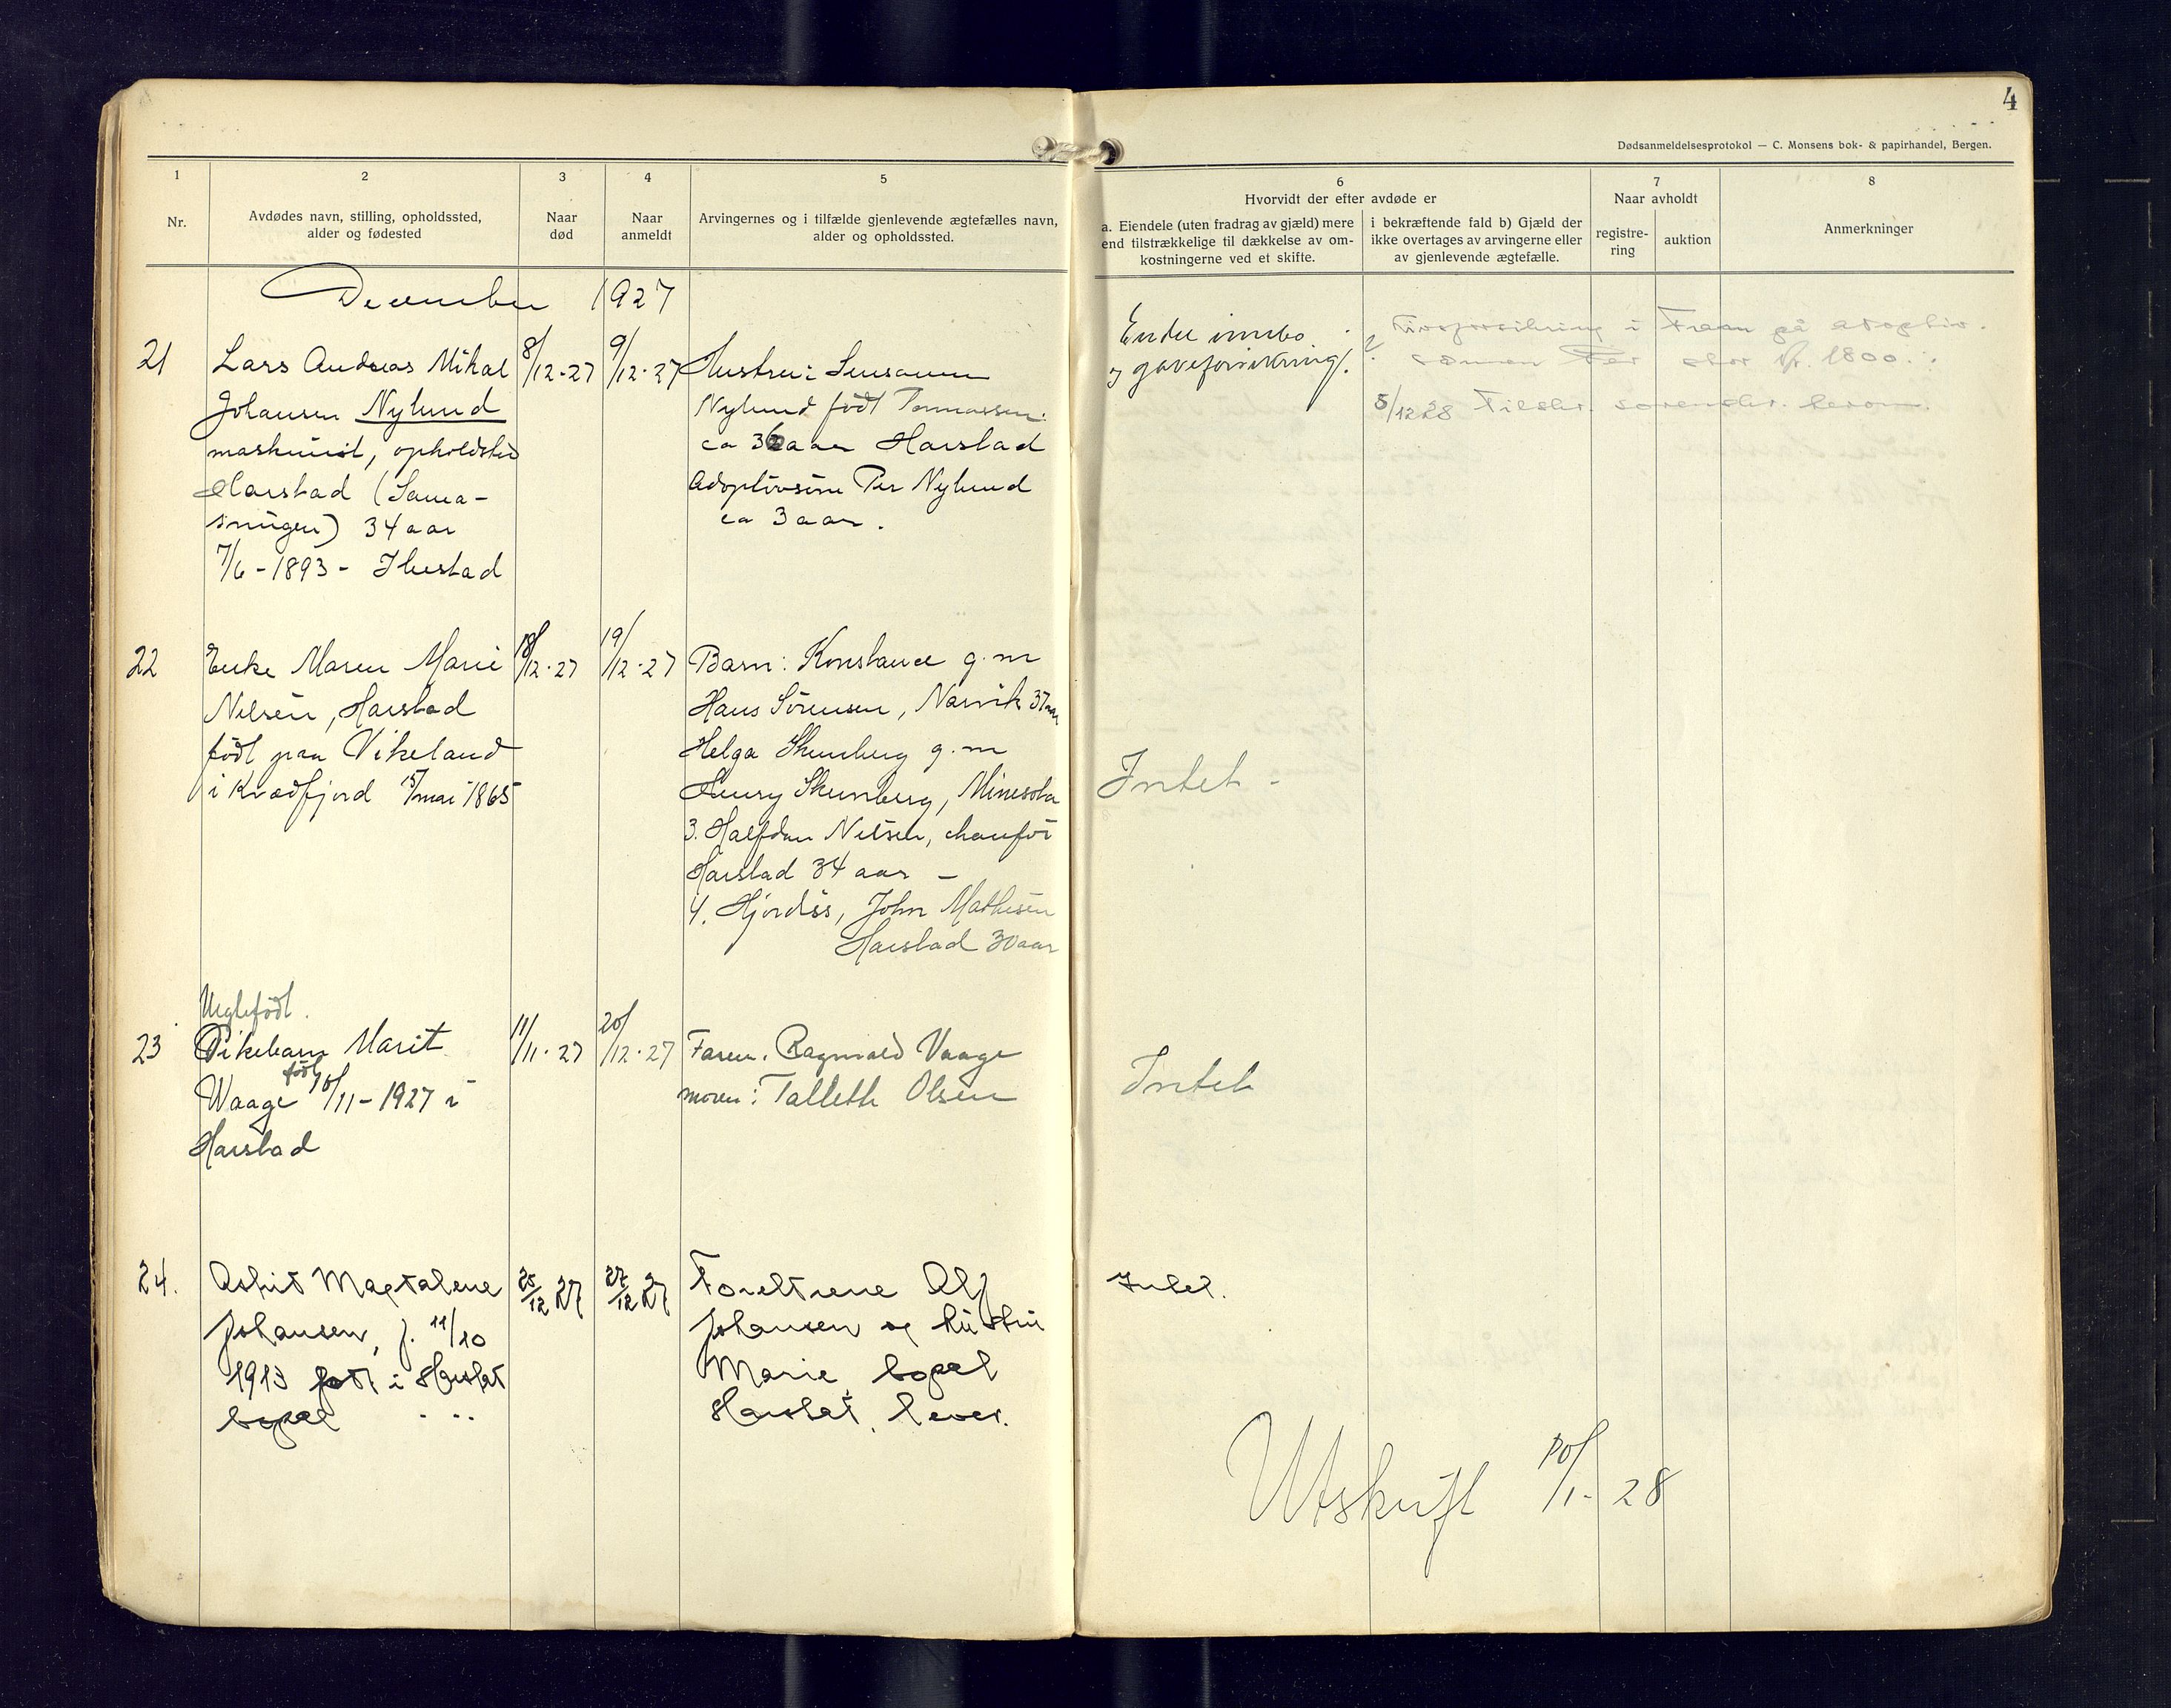 4
Dødsanmeldelsesprotokol — C. Monsens bok- & papirhandel, Bergen.
1
Nr.
2
Avdødes navn, stilling, opholdssted,
alder og fødested
3
Naar
død
4
Naar
anmeldt
5
Arvingernes og i tilfælde gjenlevende ægtefælles navn,
alder og opholdssted.
6
Hvorvidt der efter avdøde er
a. Eiendele (uten fradrag av gjæld) mere
end tilstrækkelige til dækkelse av om-
kostningerne ved et skifte.
i bekræftende fald b) Gjæld der
ikke overtages av arvingerne eller
av gjenlevende ægtefælle.
7
Naar avholdt
registre-
ring
auktion
8
Anmerkninger
December 1927
21
Lars Andreas Mikal
Johansen Nylund
maskinist, opholdsted
Harstad (Sama-
) 34 aar
7/6 - 1893 - Ibestad
8/12-27
9/12-27
Hustru:
Nylund født Tomassen.
ca 36 aar Harstad
Adoptivsøn Per Nylund
ca 3 aar.
Endel innbo
og
Livsforsikring i Fram på adoptiv-
sønnen Per stor kr. 1800.
5/12 28
22
Enke Maren Marie
Nilsen, Harstad
født paa Vikeland
i Kvædfjord 15/mai 1865
18/12-27
19/12-27
Barn: Konstance g.m
Hans Sørensen, Narvik 37 aar
Helga Skunberg g.m
Henry Skunberg, Minesota
3. Halfdan Nilsen, chauffør
Harstad 34 aar -
4. Hjørdis, John Mathisen
Harstad 30 aar
Intet -
23
Uegtefødt.
Pikebarn Marit
født
Waage 10/11 - 1927 i
Harstad
11/11-27
20/12-27
Faren: Ragnvald Vaage
moren: Tallette Olsen
Intet
24.
Astrid Magdalene
Johansen, f. 11/10
1913 født i Harstad
bopæl " "
25/12 27
27/12 27
Foreldrene Alf
Johansen og hustru
Marie, bopæl
Harstad, lever.
Intet.
Utskrift 10/1-28